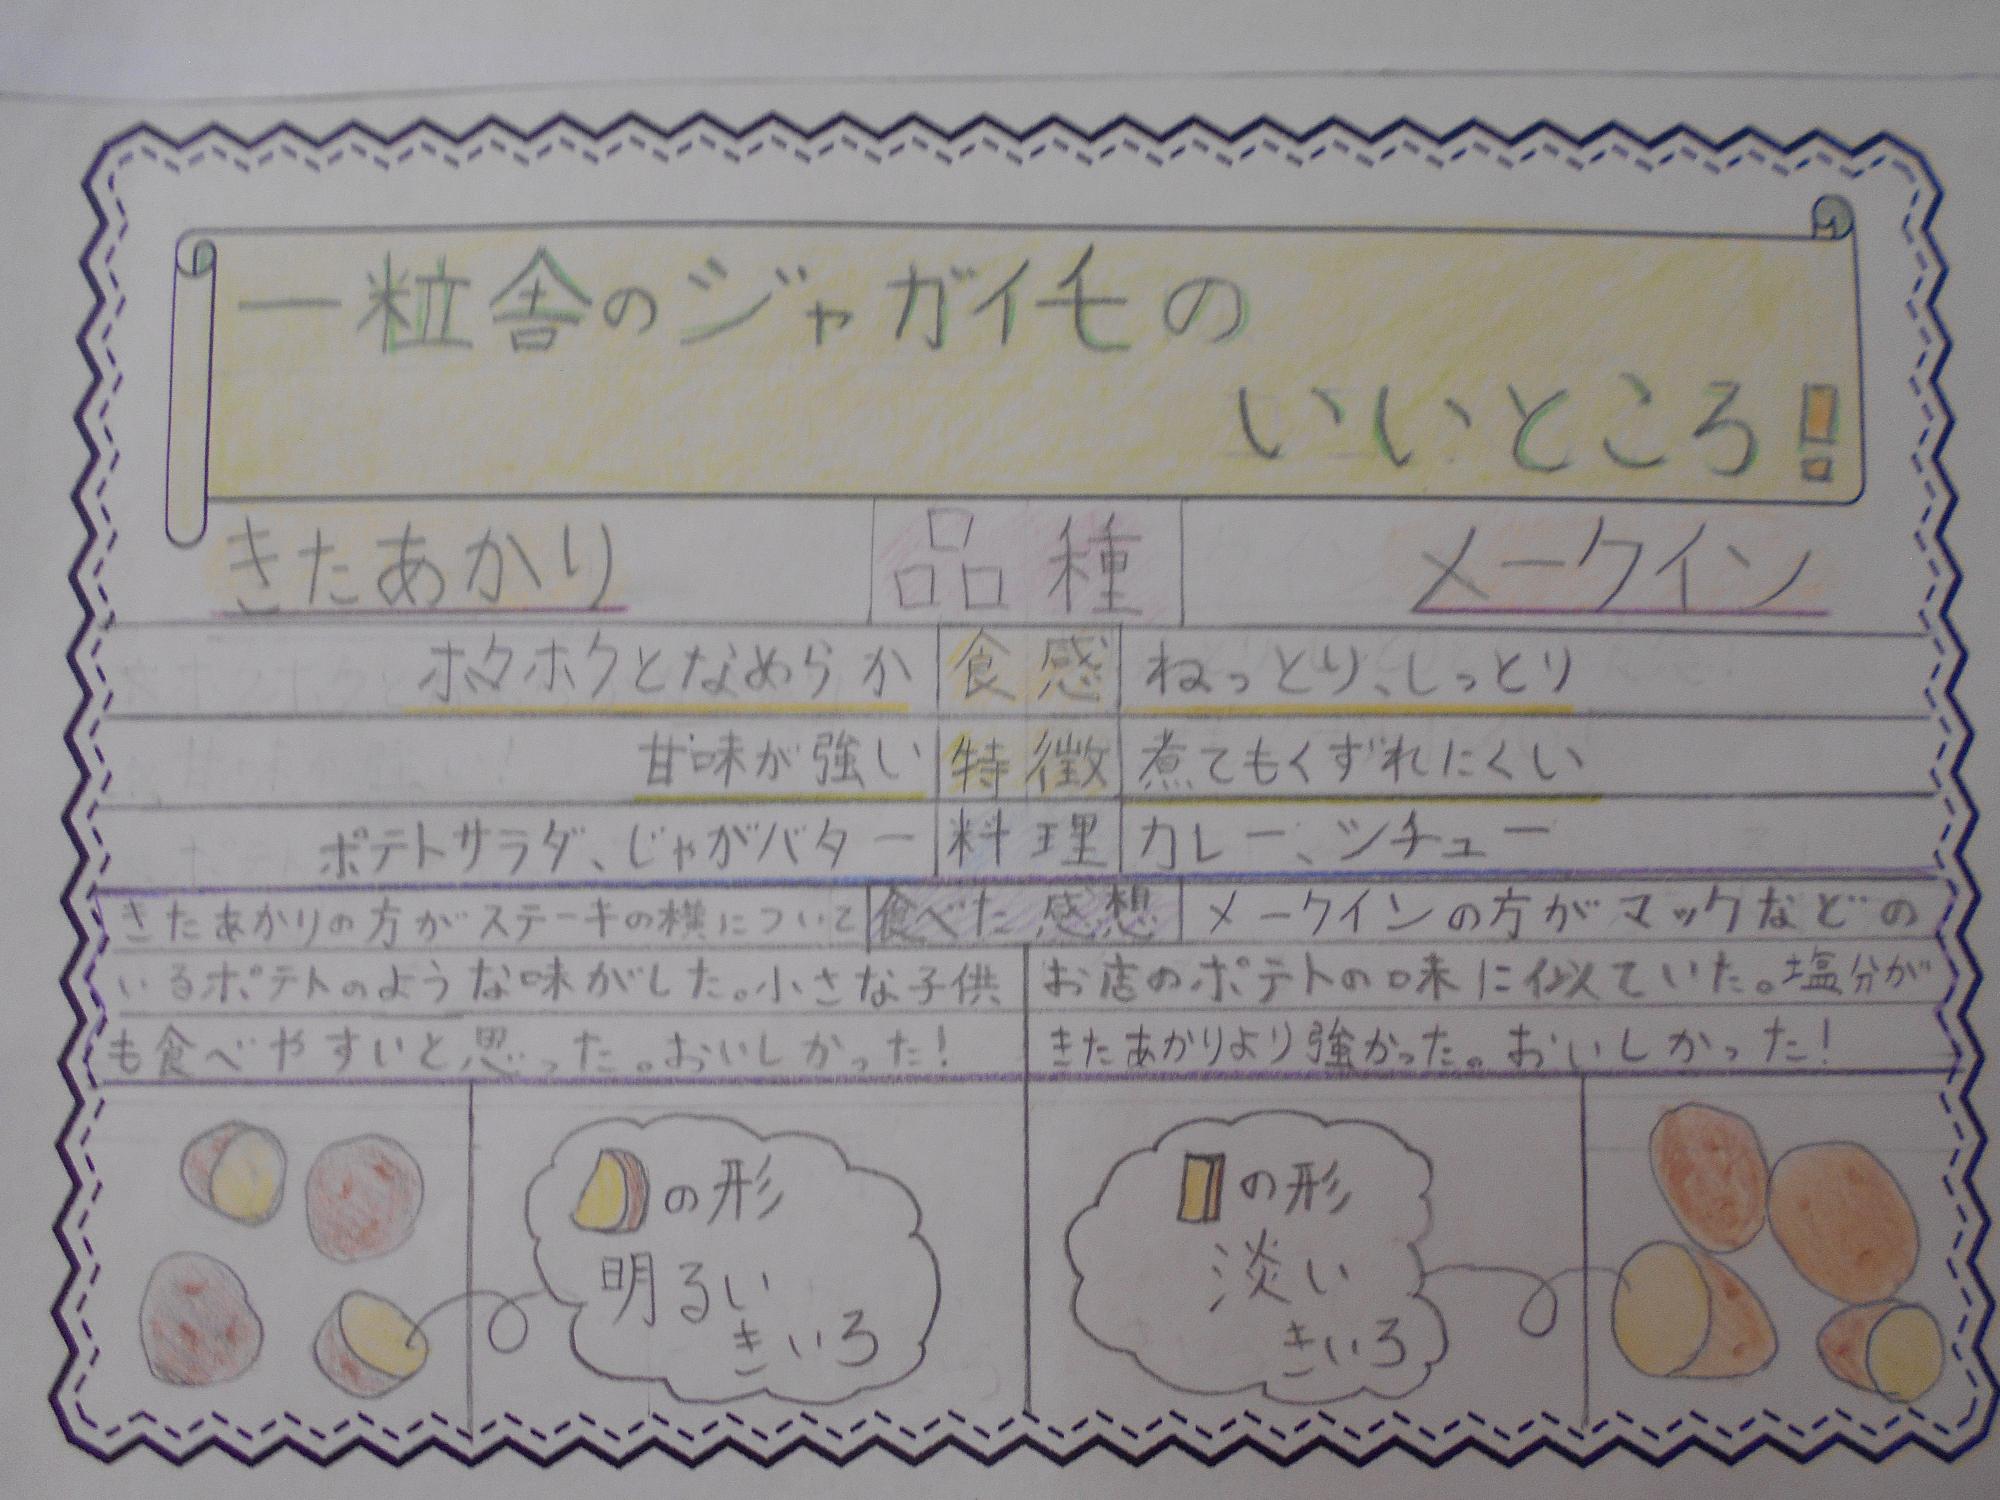 一粒舎のジャガイモの
いいところ!
きたあかり 品種 メークイン
ホクホクとなめらか 食感 ねっとり、しっとり
甘味が強い 特徴 煮てもくずれにくい
ポテトサラダ、じゃがバター 料理 カレー、シチュー
食べた感想
きたあかりの方がステーキの横について
いるポテトのような味がした。小さな子供
も食べやすいと思った。おいしかった!
メークインの方がマックなどの
お店のポテトの味に似ていた。塩分が
きたあかりより強かった。おいしかった!
の形
明るい
きいろ
の形
淡い
きいろ